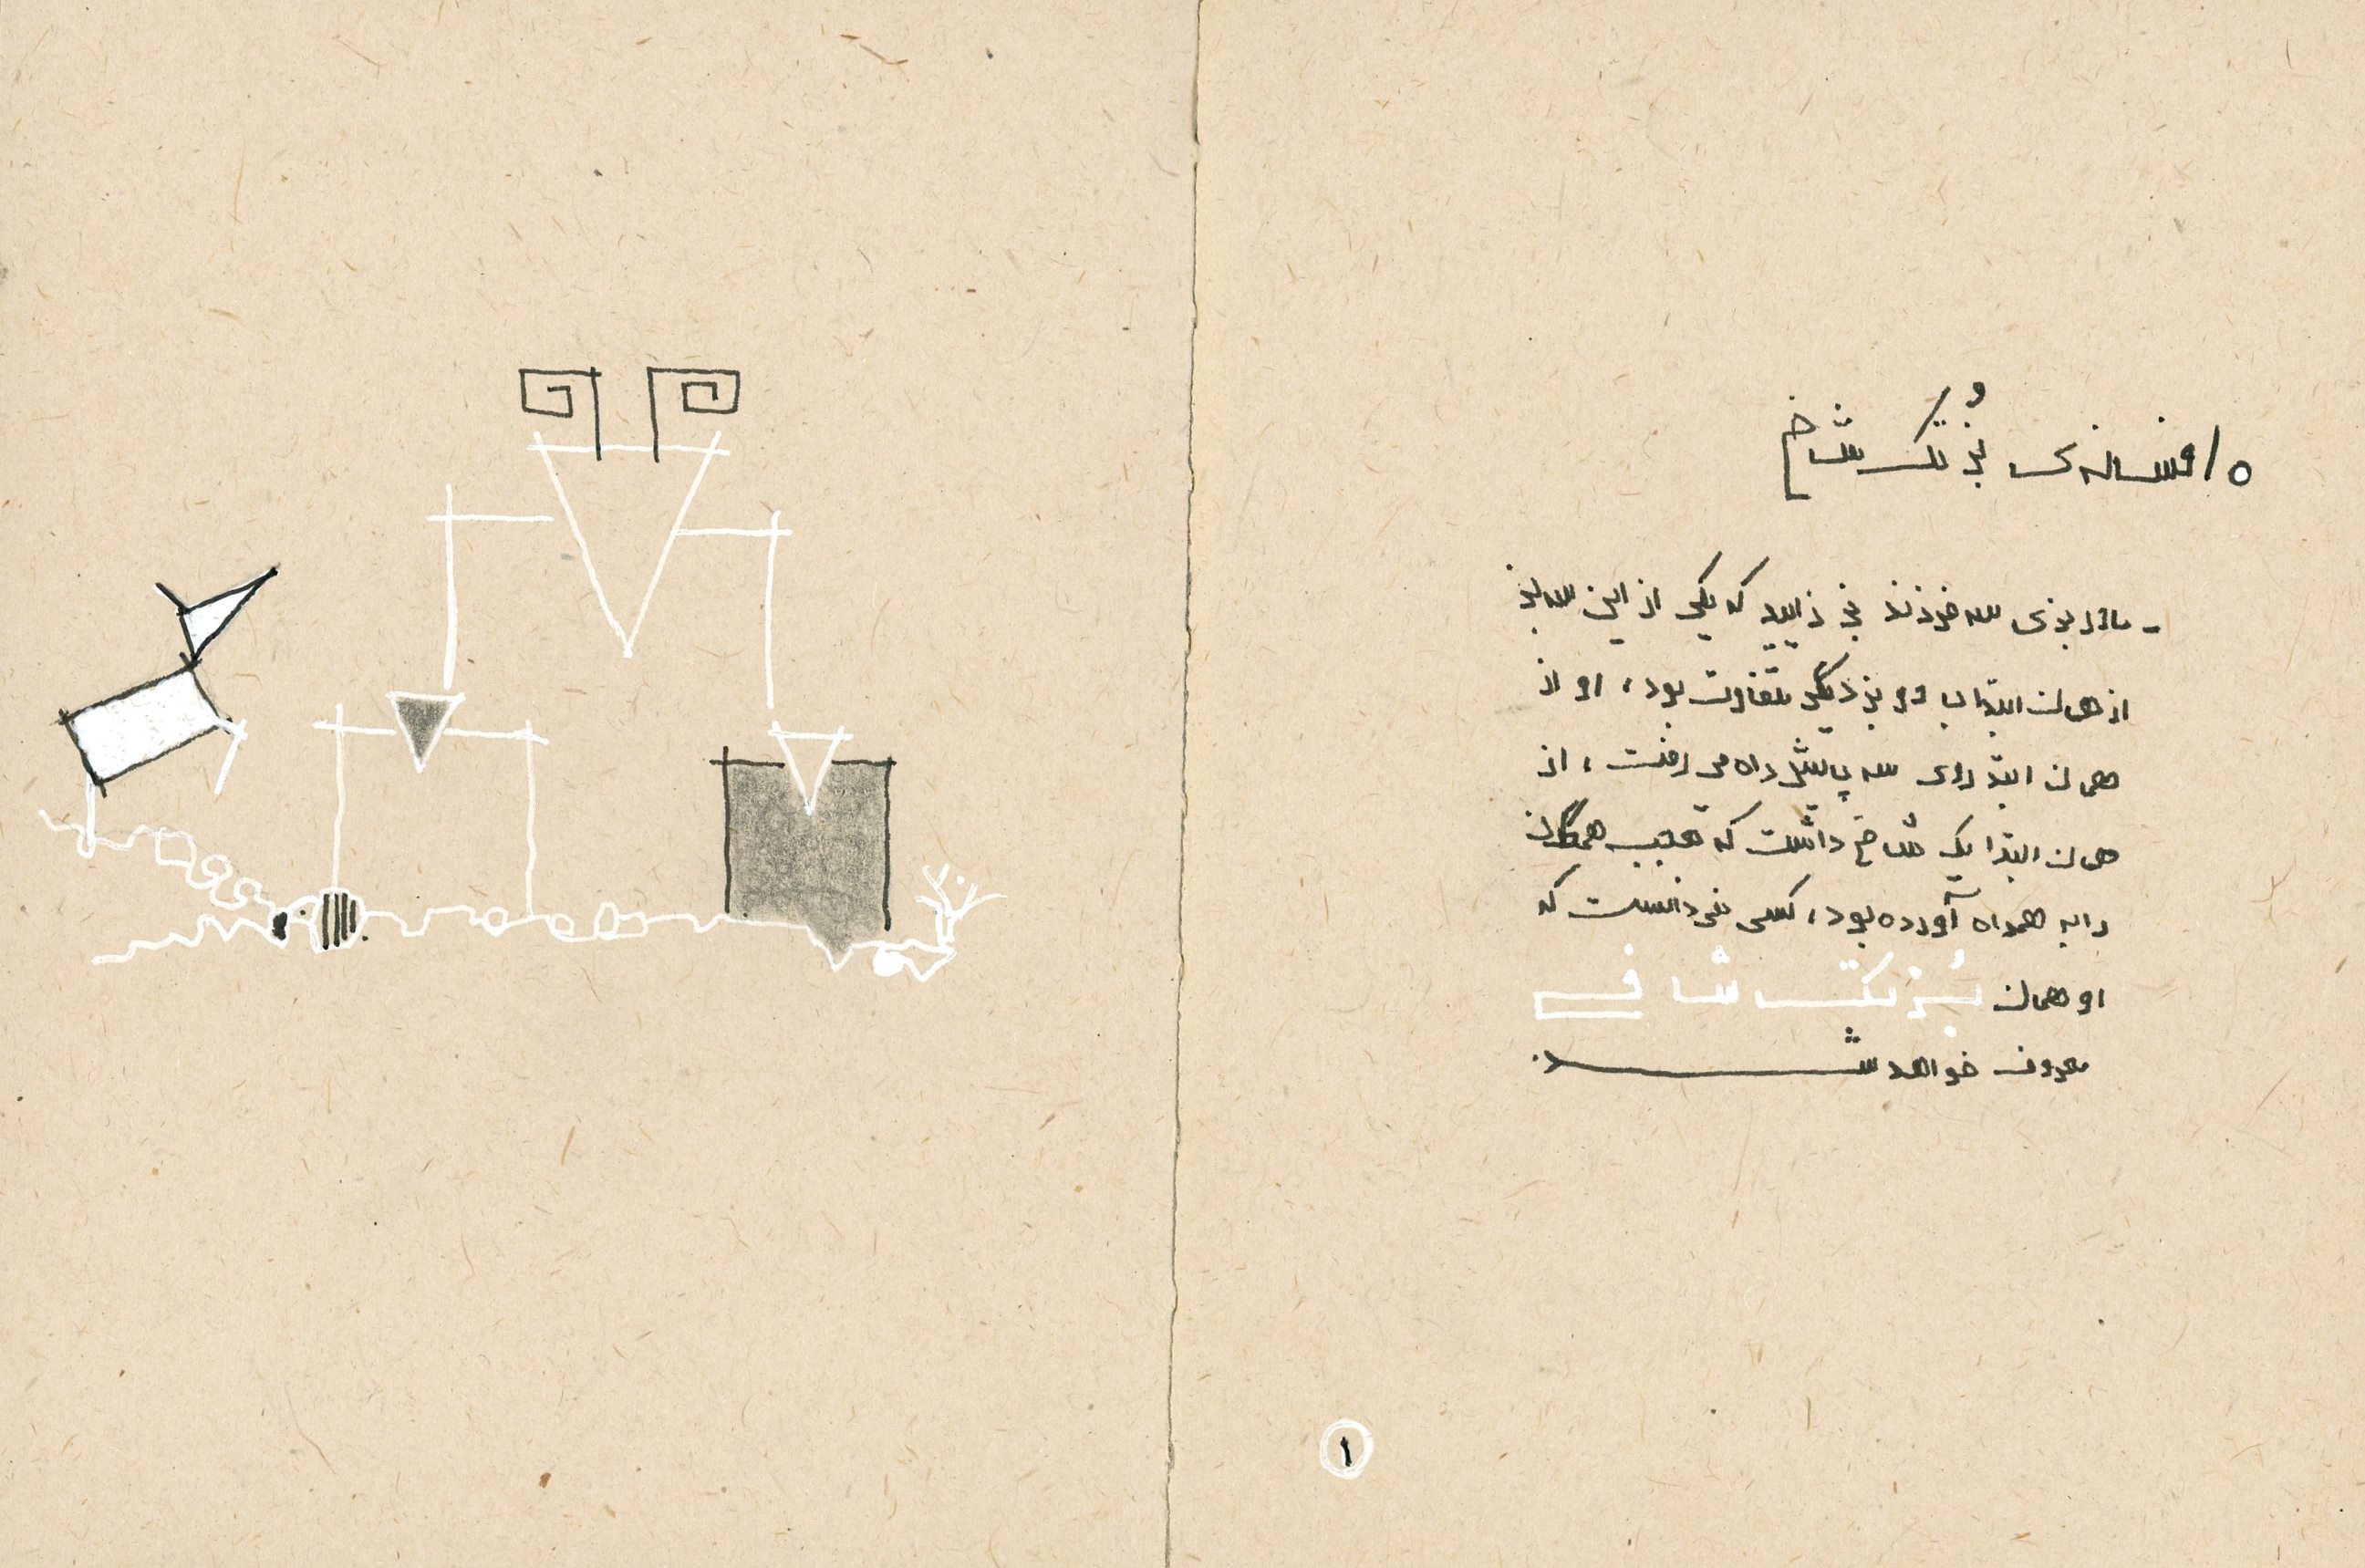 افسانه‌ی بُز تک شاخ
- مادر بزی سه فرزند بز زایید که یکی از این سه بز
از همان ابتدا با دو بز دیگر متفاوت بود، او از
همان ابتدا روی سه پایش راه می رفت، از
همان ابتدا یک شاخ داشت که تعجب همگان
را به همراه آورده بود، کسی نمی دانست که
او همان بُز تک شاخ
معروف خواهد شد.
۱